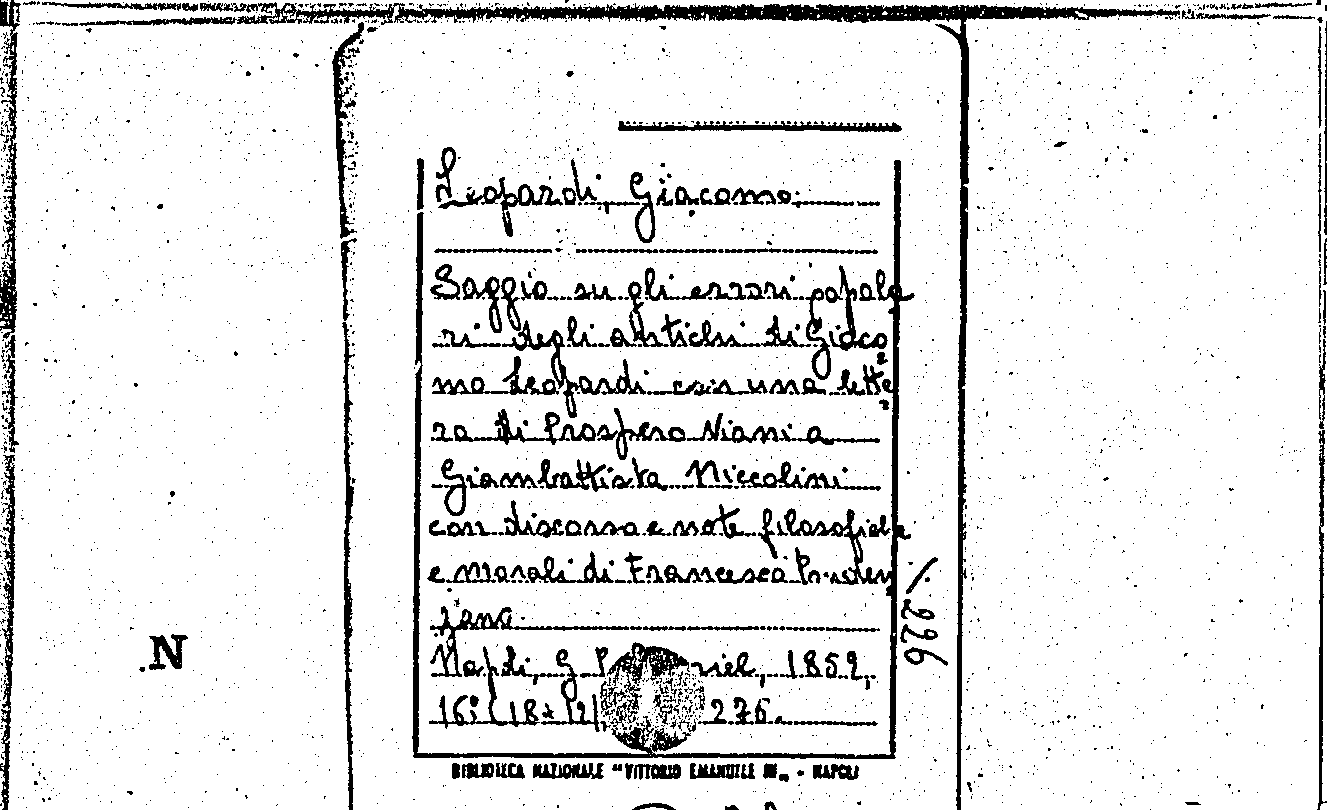 Leopardi, Giacomo.
Saggio su gli errori popola
ri degli antichi di Giaco
mo Leopardi con una lette
ra di Prospero Viani a
Giambattista Niccolini
con discorso e note filosofiche
e morali di Francesco Pruden
zano.
Napoli, G. 1859,
16° (18x12), 276.
BIBLIOTECA NAZIONALE "VITTORIO EMANUELE III" - NAPOLI
N
926